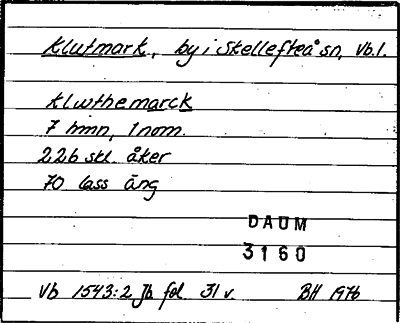 Klutmark, by i Skellefteå sn, Vb.l.
Klwthemarck
7 hmn, 1 nom.
226 skl. åker
70 lass äng
DAUM
3160
Vb 1543:2 Jb fol 31 v. BH 1976